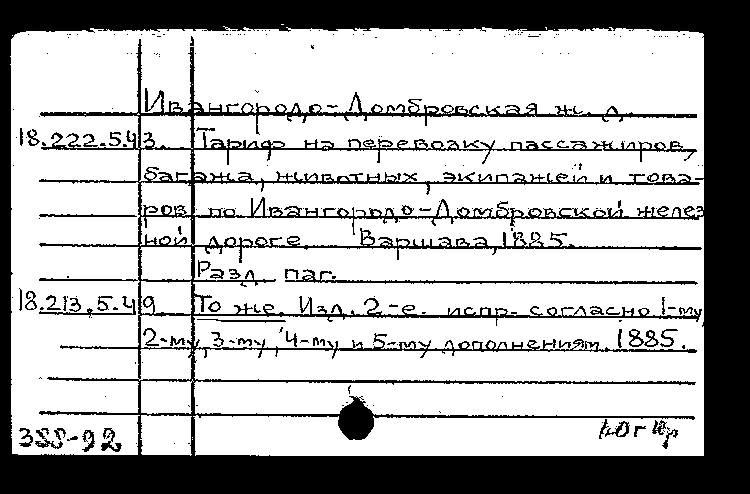 Ивангородо-Домбровская ж. д.
18.222.5.43. Тариф на перевозку пассажиров,
багажа, животных, экипажей и това-
ров по Ивангородо-Домбровской желез
ной дороге. Варшава, 1885.
Разд. паг.
18.213.5.49. То же. Изд. 2-е. испр. согласно 1-му,
2-му, 3-му, 4-му и 5-му дополнениям. 1885.
388-92